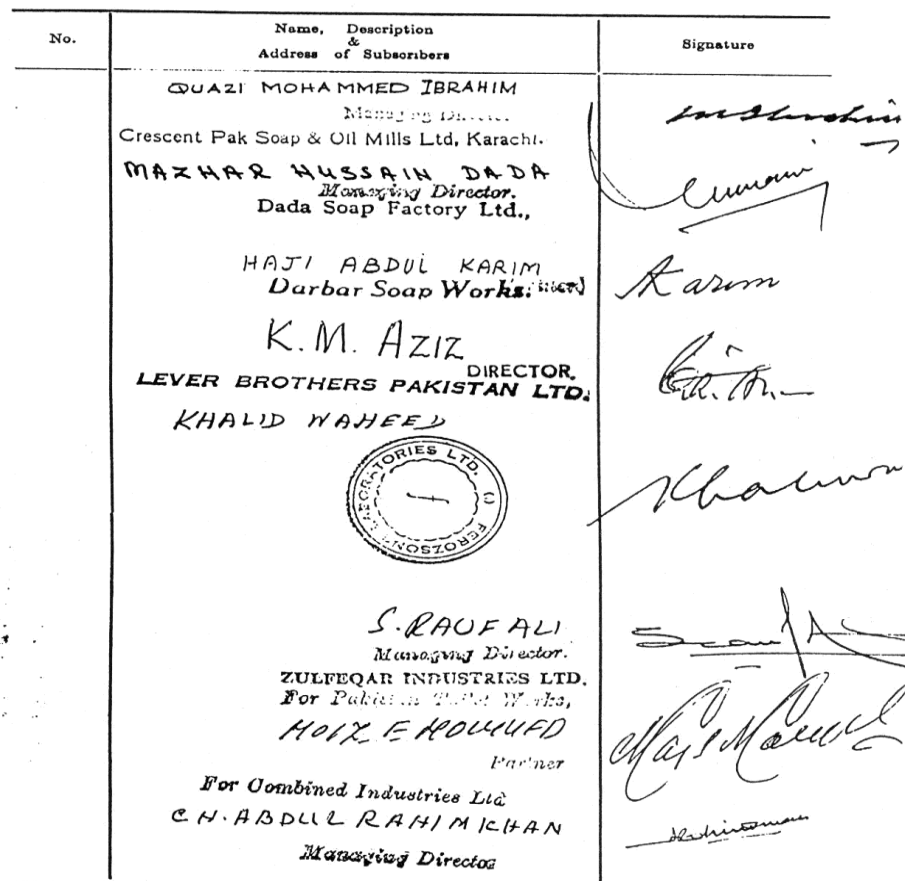 No.
Name, Description
&
Address of Subscribers
Signature
QUAZI MOHAMMED IBRAHIM
Managing Director.
Crescent Pak Soap & Oil Mills Ltd, Karachi.
MAZHAR HUSSAIN DADA
Managing Director.
Dada Soap Factory Ltd.,
HAJI ABDUL KARIM
Darbar Soap Works.
Karim
K.M. AZIZ
DIRECTOR.
LEVER BROTHERS PAKISTAN LTD.
KHALID WAHEED
FEROZSONS LABORATORIES LTD.
S. RAUF ALI
Managing Director.
ZULFEQAR INDUSTRIES LTD.
For Pakistan Toilet Works,
MOIZ E
Partner
For Combined Industries Ltd
CH. ABDUL RAHIM KHAN
Managing Director